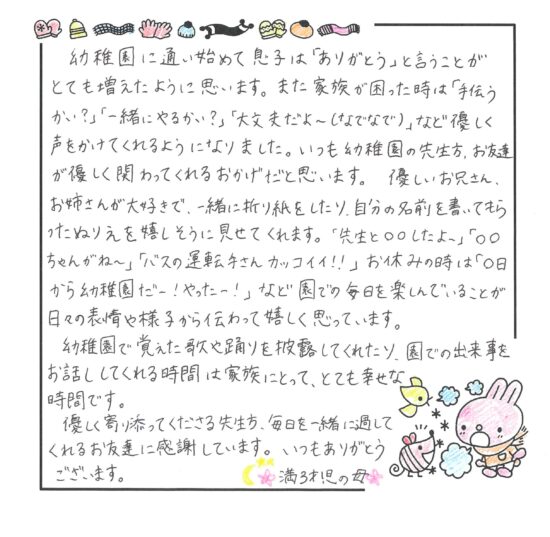 幼稚園に通い始めて息子は「ありがとう」と言うことが
とても増えたように思います。また家族が困った時は「手伝う
かい？」「一緒にやるかい？」「大丈夫だよ～（なでなで）」など優しく
声をかけてくれるようになりました。いつも幼稚園の先生方、お友達
が優しく関わってくれるおかげだと思います。 優しいお兄さん、
お姉さんが大好きで、一緒に折り紙をしたり、自分の名前を書いてもら
ったぬりえを嬉しそうに見せてくれます。「先生と○○したよ～」「○○
ちゃんがね～」「バスの運転手さんカッコイイ！！」お休みの時は「○日
から幼稚園だー！やったー！」など園での毎日を楽しんでいることが
日々の表情や様子から伝わって嬉しく思っています。
幼稚園で覚えた歌や踊りを披露してくれたり、園での出来事を
お話ししてくれる時間は家族にとって、とても幸せな
時間です。
優しく寄り添ってくださる先生方、毎日を一緒に過ごして
くれるお友達に感謝しています。いつもありがとう
ございます。
満3才児の母